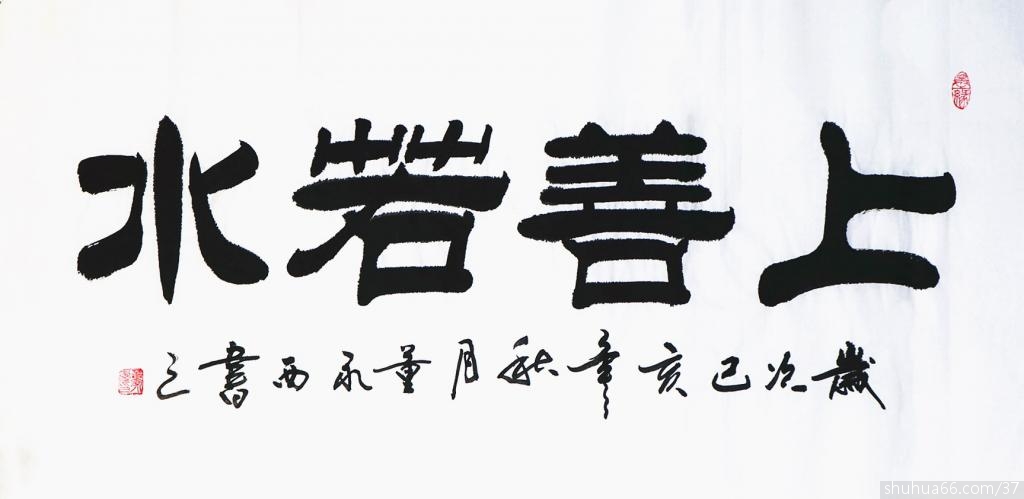 上善若水
歲次己亥年秋月董永西書之
shuhua66.com/37